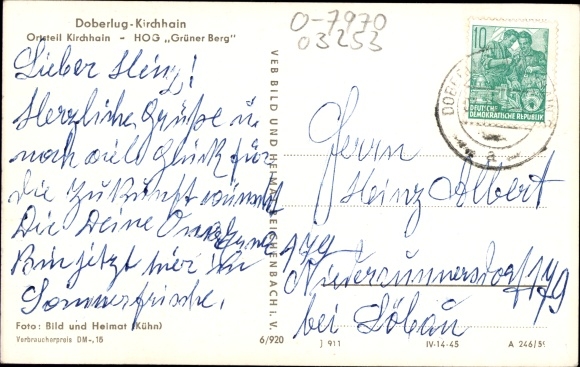 Doberlug-Kirchhain
Ortsteil Kirchhain - HOG „Grüner Berg"
O-7970
03253
Lieber Heinz!
Herzliche Grüße u.
noch viel Glück für
die Zukunft wünscht
Dir Deine
Bin jetzt hier in
Sommerfrische.
Foto: Bild und Heimat (Kühn)
Verbraucherpreis DM -,18
VEB BILD UND HEIMAT REICHENBACH I. V.
6/920
10
DEUTSCHE
DEMOKRATISCHE REPUBLIK
Herrn
Heinz Albert
179
Niedercunnersdorf 179
bei Löbau
J 911
IV-14-45
A 246/59